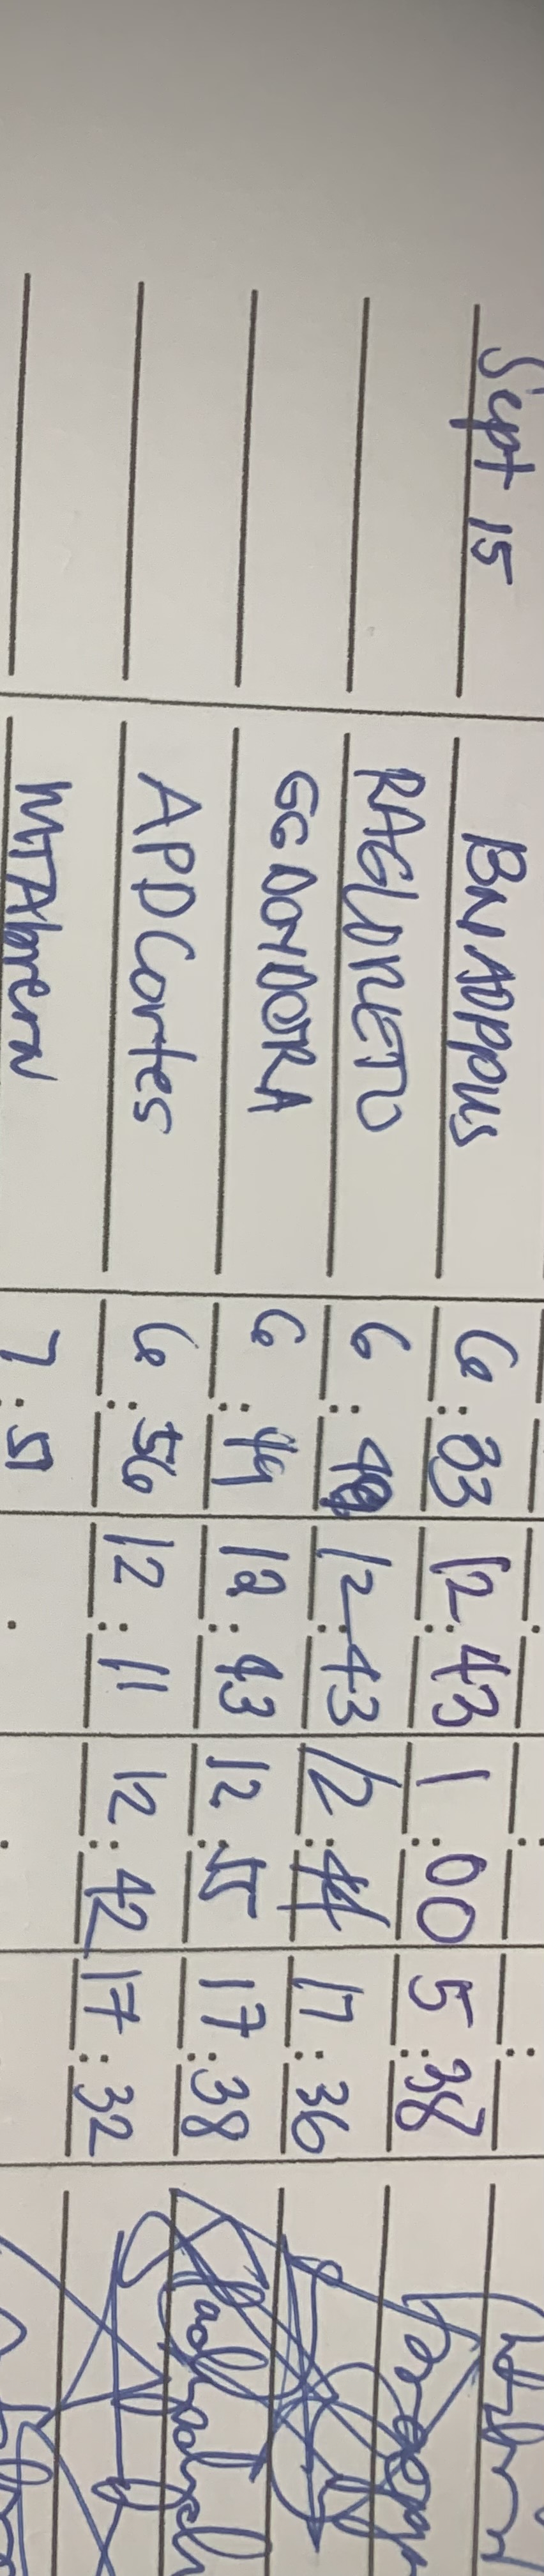 Sept 15 BN ADPPUS 6:33 12:43 1:00 5:38
RAGLORETO 6:49 12:43 12: 17:36
GG DONDORA 6:49 12:43 12:55 17:38
APD Cortes 6:56 12:11 12:42 17:32
MTAbrera 7:51